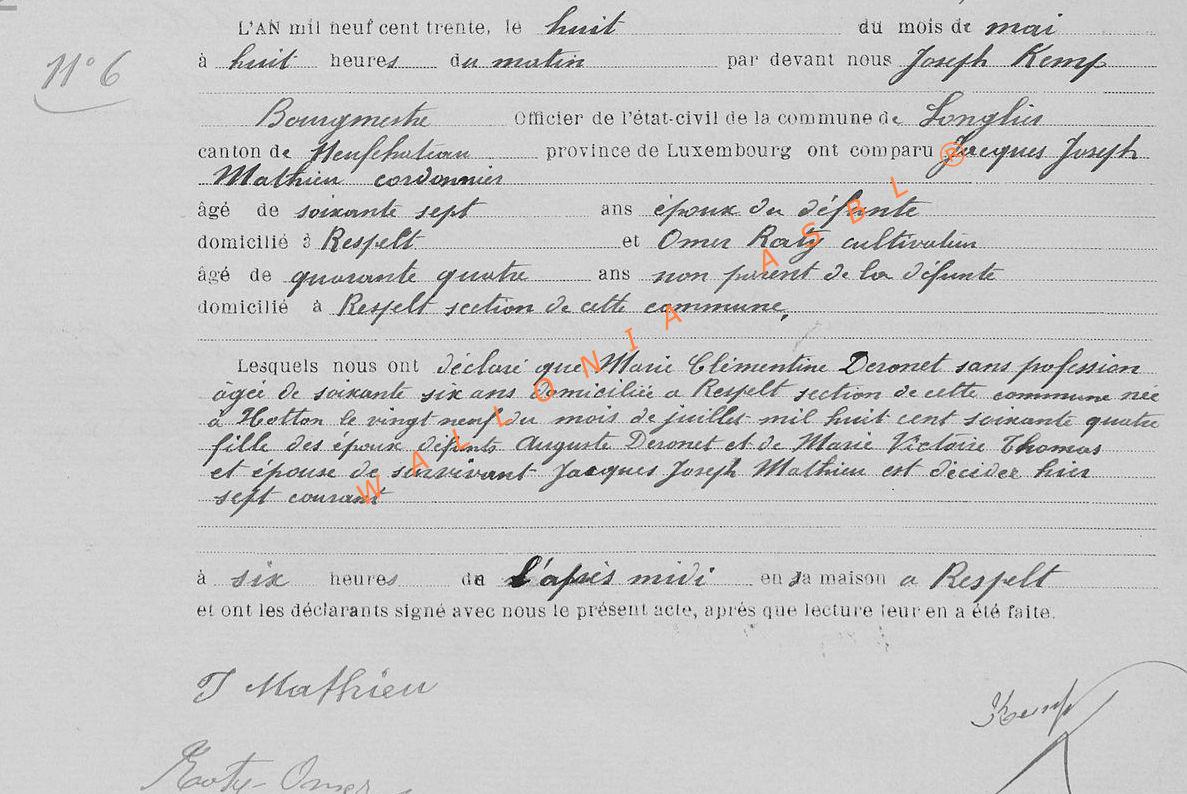 N° 6
L'AN mil neuf cent trente, le huit du mois de mai
à huit heures du matin par devant nous Joseph Kemp
Bourgmestre Officier de l'état-civil de la commune de Longlier
canton de Neufchateau province de Luxembourg ont comparu Jacques Joseph
Mathieu cordonnier
âgé de soixante sept ans époux du défunte
domicilié à Respelt et Omer Roty cultivateur
âgé de quarante quatre ans non parent de la défunte
domicilié à Respelt section de cette commune,
Lesquels nous ont déclaré que Marie Clémentine Deronet sans profession
âgée de soixante six ans domiciliée a Respelt section de cette commune née
à Hotton le vingt neuf du mois de juillet mil huit cent soixante quatre
fille des époux défunts Auguste Deronet et de Marie Victoire Thomas
et épouse de survivant Jacques Joseph Mathieu est décider hier
sept courant
à six heures de l'après midi en sa maison a Respelt
et ont les déclarants signé avec nous le présent acte, après que lecture leur en a été faite.
J Mathieu
Kemp
Roty-Omer
WALLONIA ASBL ®